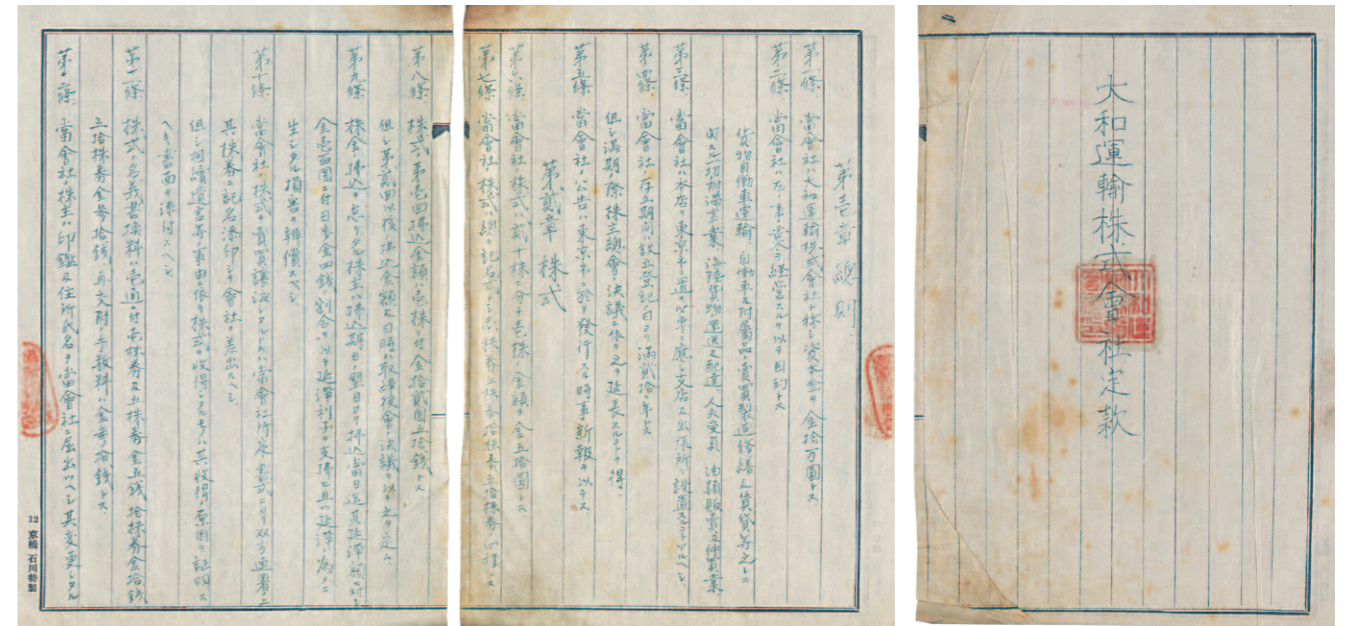 大和運輸株式會社定款
第壱章 總則
第一條 當會社ハ大和運輸株式会社ト称シ資本金ヲ金拾万圓トス
第二條 當會社ハ左ノ事業ヲ経営スルヲ以テ目的トス
貨物自働車運輸 自働車及附属品ノ賣買製造修繕及賃貸等之ニ
関スル一切ノ附帯事業 海陸貨物運送及配達 人夫受負 油類販賣及仲買業
第三條 當會社ハ本店ヲ東京市ニ置キ必要ニ應シ支店及出張所ヲ設置スルコトヲ得ヘシ
第四條 當會社ノ存立期間ハ設立登記ノ日ヨリ満貳拾ケ年トス
但シ満期ノ際株主總會ノ決議ニ依リ之ヲ延長スルコトヲ得
第五條 當會社ノ公告ハ東京市ニ於テ發行スル時事新報ヲ以テス
第貳章 株式
第六條 當會社ノ株式ハ貳千株ニ分チ壱株ノ金額ヲ金五拾圓トス
第七條 當會社ノ株式ハ總テ記名式トシ壱株券五株券拾株券五拾株券ノ四種トス
第八條 株式ノ第壱回拂込金額ハ壱株ニ付金拾貳圓五拾銭トス
但シ第貳回以後ノ拂込金額及日時ハ取締役會ノ決議ヲ以テ之ヲ定ム
第九條 株金ノ拂込ヲ怠リタル株主ハ拂込期日ノ翌日ヨリ拂込當日迄其延滞額ニ対シ
金壱百圓ニ付日歩金四銭ノ割合ヲ以テ延滞利子ヲ支拂ヒ且ツ延滞ノ為メニ
生シタル損害ヲ辨償スベシ
第十條 當會社ノ株式ヲ賣買譲渡シタルトキハ當會社所定ノ書式ニヨリ双方連署ノ上
其株券ニ記名添印シ會社ニ差出スヘシ
但シ相續遺言等ノ事由ニ依リ株式ヲ收得シタルモノハ其收得ノ原因ヲ証明ス
ヘキ書面ヲ添付スヘシ
第十一條 株式ノ名義書換料ハ壱通ニ付壱株券及五株券金五銭 拾株券金拾銭
五拾株券金参拾銭 再交附ノ手数料ハ金参拾銭トス
第十二條 當會社ノ株主ハ印鑑及住所氏名ヲ當會社ニ届出ツヘシ其変更シタル
12 京橋 石川特製